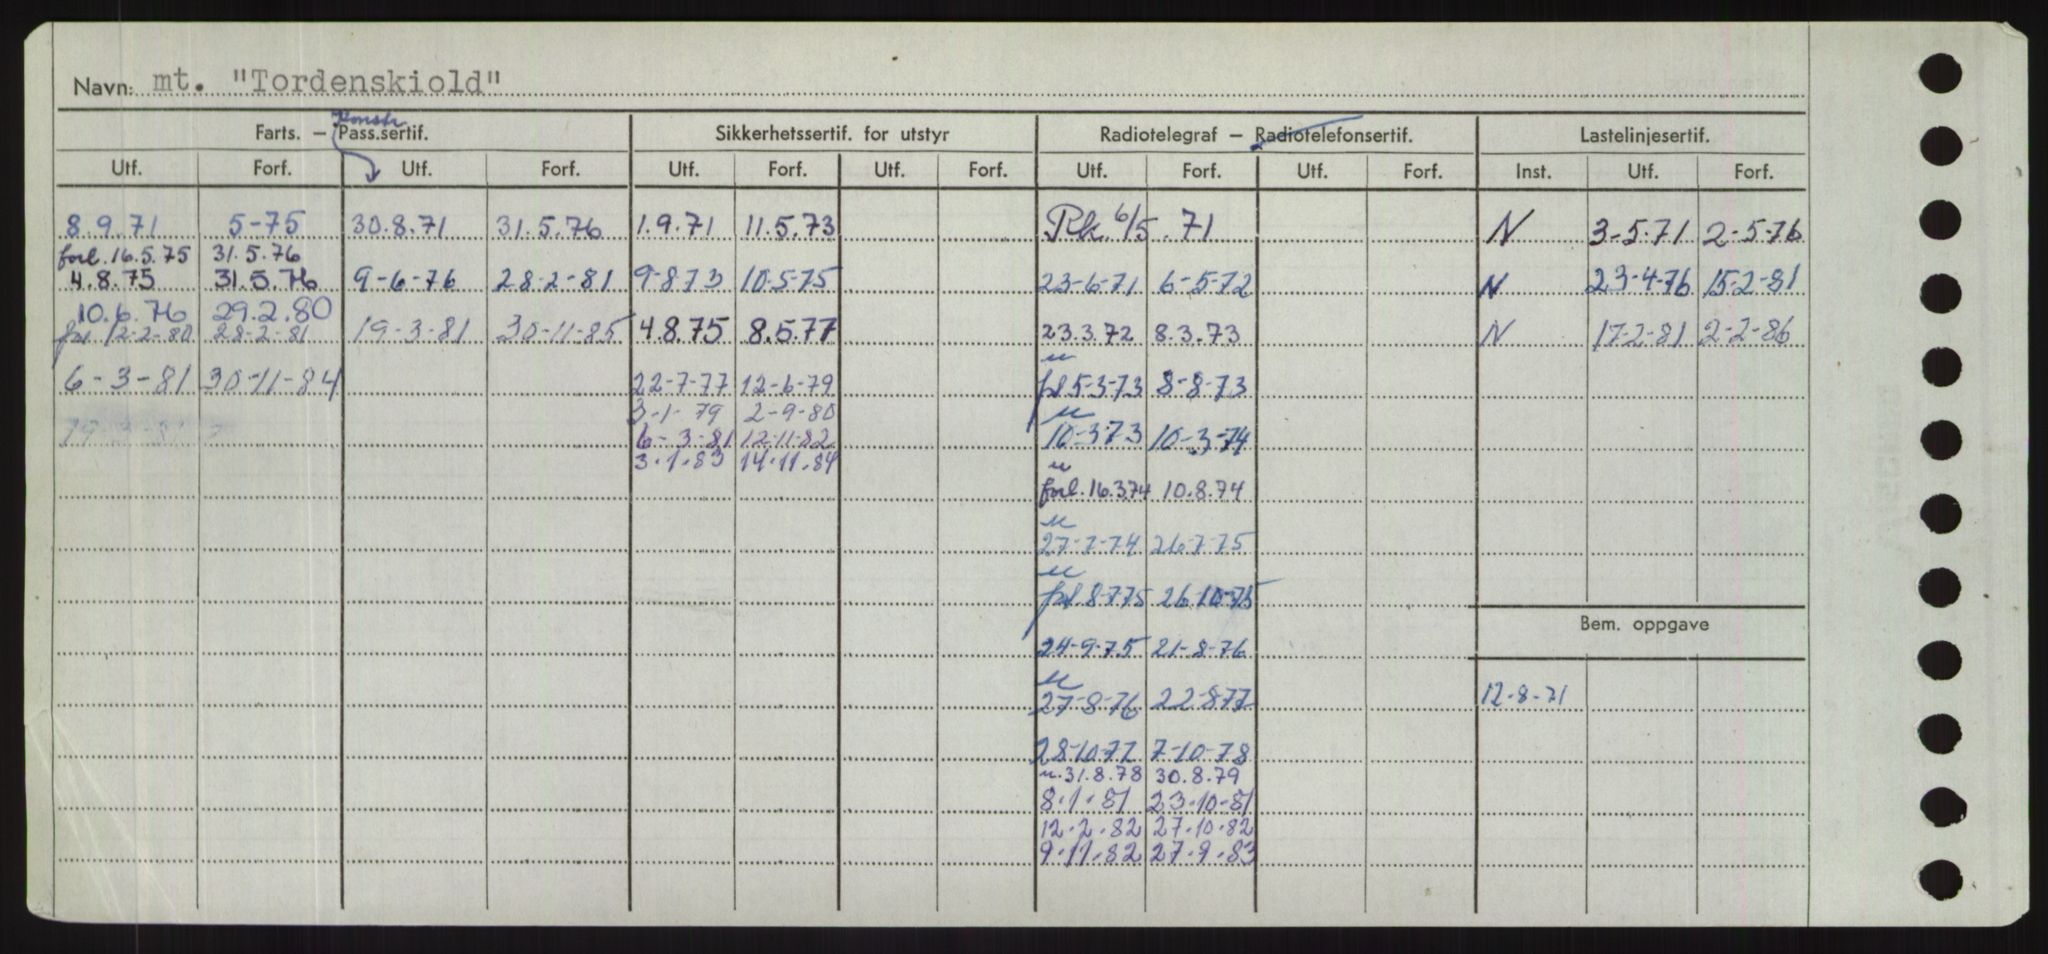 Navn: mt. "Tordenskiold"
Konstr
Farts. – Pass.sertif. Sikkerhetssertif. for utstyr Radiotelegraf – Radiotelefonsertif. Lastelinjesertif.
Utf. Forf. Utf. Forf. Utf. Forf. Utf. Forf. Utf. Forf. Utf. Forf. Inst. Utf. Forf.
8.9.71 5-75 30.8.71 31.5.76 1.9.71 11.5.73 Rk. 6/5.71 N 3-5.71 2-5-76
forl. 16.5.75 31.5.76
4.8.75 31.5.76 9-6-76 28-2-81 9-8 73 10.5-75 23-6-71 6-5-72 N 23-4-76 15-2-81
10.6.76 29.2.80
fxl 12-2-80 28-2-81 19-3-81 30-11-85 4.8.75 8.5.77 23.3.72 8.3.73 N 17-2-81 2-2-86
u
6-3-81 30-11-84 22-7-77 12-6-79 fxl 5-3-73 8-8-73
3-1-79 2-9-80
u
6-3-81 12-11-82 10-3-73 10-3-74
3.1.83 14.11.84
u
forl. 16.3.74 10.8.74
u
27-7-74 26-7-75
u
fxl 8-7-75 26-10-75
Bem. oppgave
24-9-75 21-8-76
u
27-8-76 22-8-77 12-8-71
28-10-77 7-10-78
u. 31.8.78 30.8.79
8.1.81 23-10-81
12.2.82 27.10.82
9.11.82 27.9.83